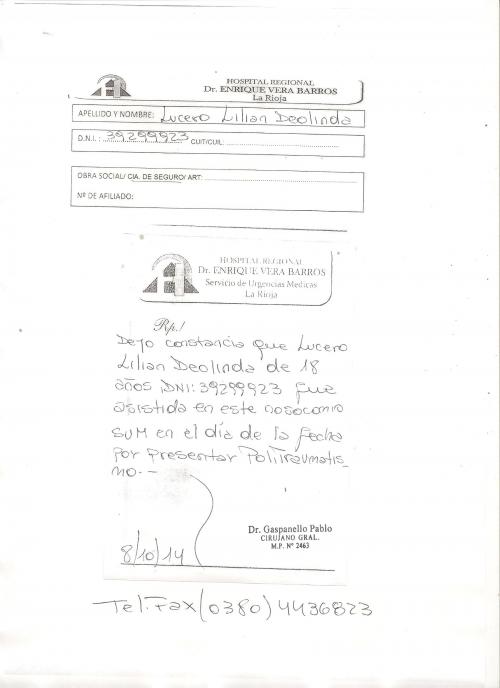 HOSPITAL REGIONAL
Dr. ENRIQUE VERA BARROS
La Rioja
APELLIDO Y NOMBRE: Lucero Lilian Deolinda
D.N.I.: 39299923 CUIT/CUIL:
OBRA SOCIAL/ CIA. DE SEGURO/ ART:
Nº DE AFILIADO:
HOSPITAL REGIONAL
Dr. ENRIQUE VERA BARROS
Servicio de Urgencias Medicas
La Rioja
Rp./
Dejo constancia que Lucero
Lilian Deolinda de 18
años, DNI: 39299923 fue
asistida en este nosocomio
SUM en el día de la fecha
por presentar Politraumatis_
mo.-
Dr. Gaspanello Pablo
CIRUJANO GRAL.
M.P. Nº 2463
8/10/14
Tel.Fax (0380) 4436823